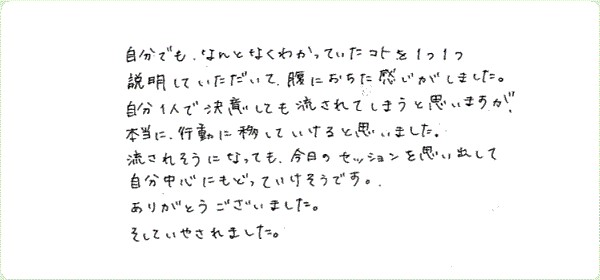 自分でも、なんとなくわかっていたコトを1つ1つ
説明していただいて、腹におちた感じがしました。
自分1人で決意しても流されてしまうと思いますが、
本当に、行動に移していけると思いました。
流されそうになっても、今日のセッションを思い出して
自分中心にもどっていけそうです。
ありがとうございました。
そしていやされました。